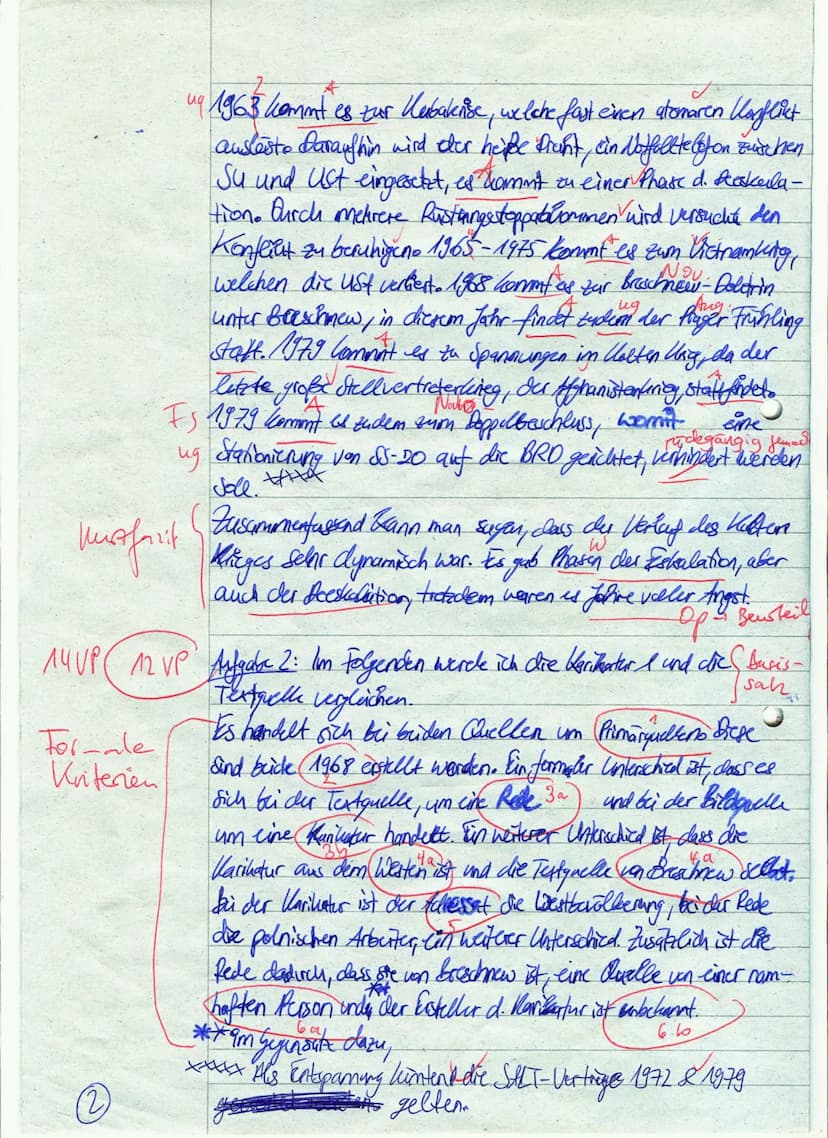 2 A
ug 1963 kommt es zur Kubakrise, welche fast einen atomaren Konflikt
auslöste. Daraufhin wird der heiße Draht, ein Notfalltelefon zwischen
SU und USt eingesetzt, es kommt zu einer Phase d. Deeskala-
tion. Durch mehrere Rüstungsstoppabkommen wird versucht den
Konflikt zu beruhigen. 1965-1975 kommt es zum Vietnamkrieg,
welchen die USt verliert. 1968 kommt es zur Breschnew-Doktrin
unter Breschnew, in diesem Jahr findet zudem der Prager Frühling
statt. 1979 kommt es zu Spannungen im Kalten Krieg, da der
letzte große Stellvertreterkrieg, der Afghanistankrieg, stattfindet.
Fs 1979 kommt es zudem zum Doppelbeschluss, womit eine
ug Stationierung von SS-20 auf die BRD gerichtet, verhindert werden
soll. xxxx
Zusammenfassend kann man sagen, dass der Verlauf des Kalten
Krieges sehr dynamisch war. Es gab Phasen der Eskalation, aber
auch der Deeskalation, trotzdem waren es Jahre voller Angst.
Kurzfazit
Op → Beurteil
14VP 12 VP Aufgabe 2: Im Folgenden werde ich die Karikatur 1 und die Basis-
Textquelle vergleichen. satz
Es handelt sich bei beiden Quellen um Primärquellen. Diese
Formale sind beide 1968 erstellt worden. Ein formaler Unterschied ist, dass es
Kriterien sich bei der Textquelle, um eine Rede 3a und bei der Bildquelle
um eine Karikatur handelt. Ein weiterer Unterschied ist dass die
Karikatur aus dem Westen ist und die Textquelle von Breschnew selbst.
Bei der Karikatur ist der Adressat die Westbevölkerung, bei der Rede
die polnischen Arbeiter, ein weiterer Unterschied. Zusätzlich ist die
Rede dadurch, dass sie von Breschnew ist, eine Quelle von einer nam-
haften Person und ** der Ersteller d. Karikatur ist unbekannt.
6a 6b
** im Gegensatz dazu,
xxxx Als Entspannung könnten die SALT-Verträge 1972 & 1979
gelten.
2